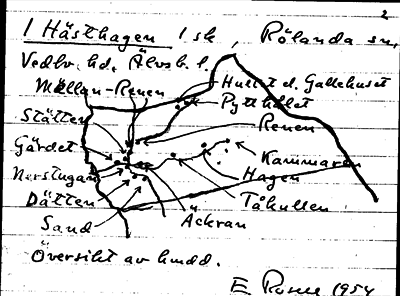 2
1 Hästhagen 1 sk, Rölanda sn,
Vedbo hd. Älvsb. l.
Mellan-Renen
Hullet d. Gallehuset
Pytthället
Stätten
Renen
Gärdet
Kammaren
Nerstugan
Hagen
Dätten
Tåkullen
Sand
Äckran
Översikt av hmdd.
E Rosell 1954